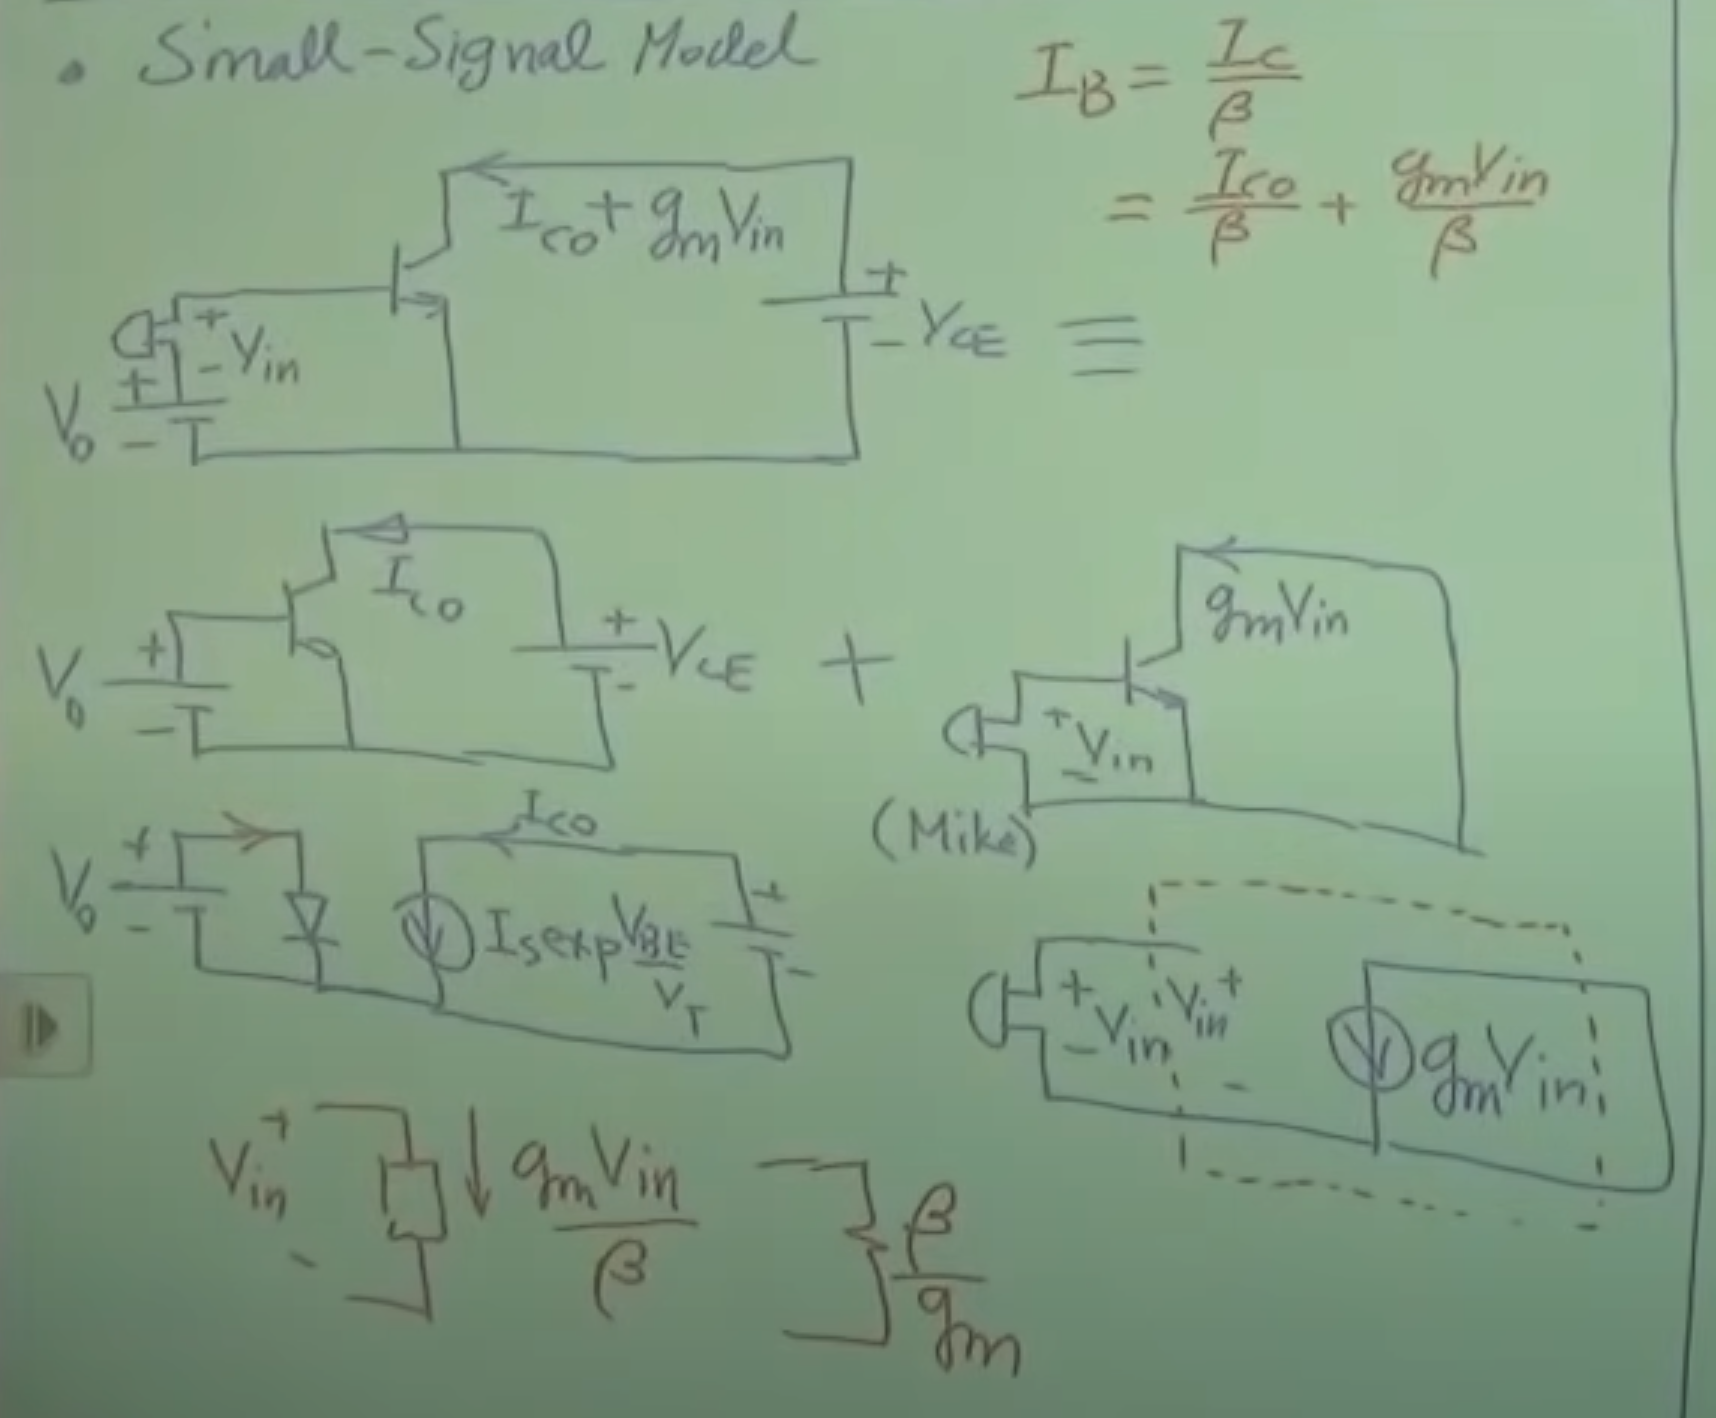 • Small-Signal Model
I_B = I_C/β
= I_CO/β + g_m V_in/β
I_CO + g_m V_in
+
+ V_in -
V_0 + -
+ - V_CE ≡
I_CO
V_0 + -
+ - V_CE +
g_m V_in
+ V_in -
(Mike)
I_CO
V_0 + -
I_S exp V_BE/V_T
+ -
+ V_in -
V_in + -
g_m V_in
V_in + -
↓ g_m V_in/β
β/g_m